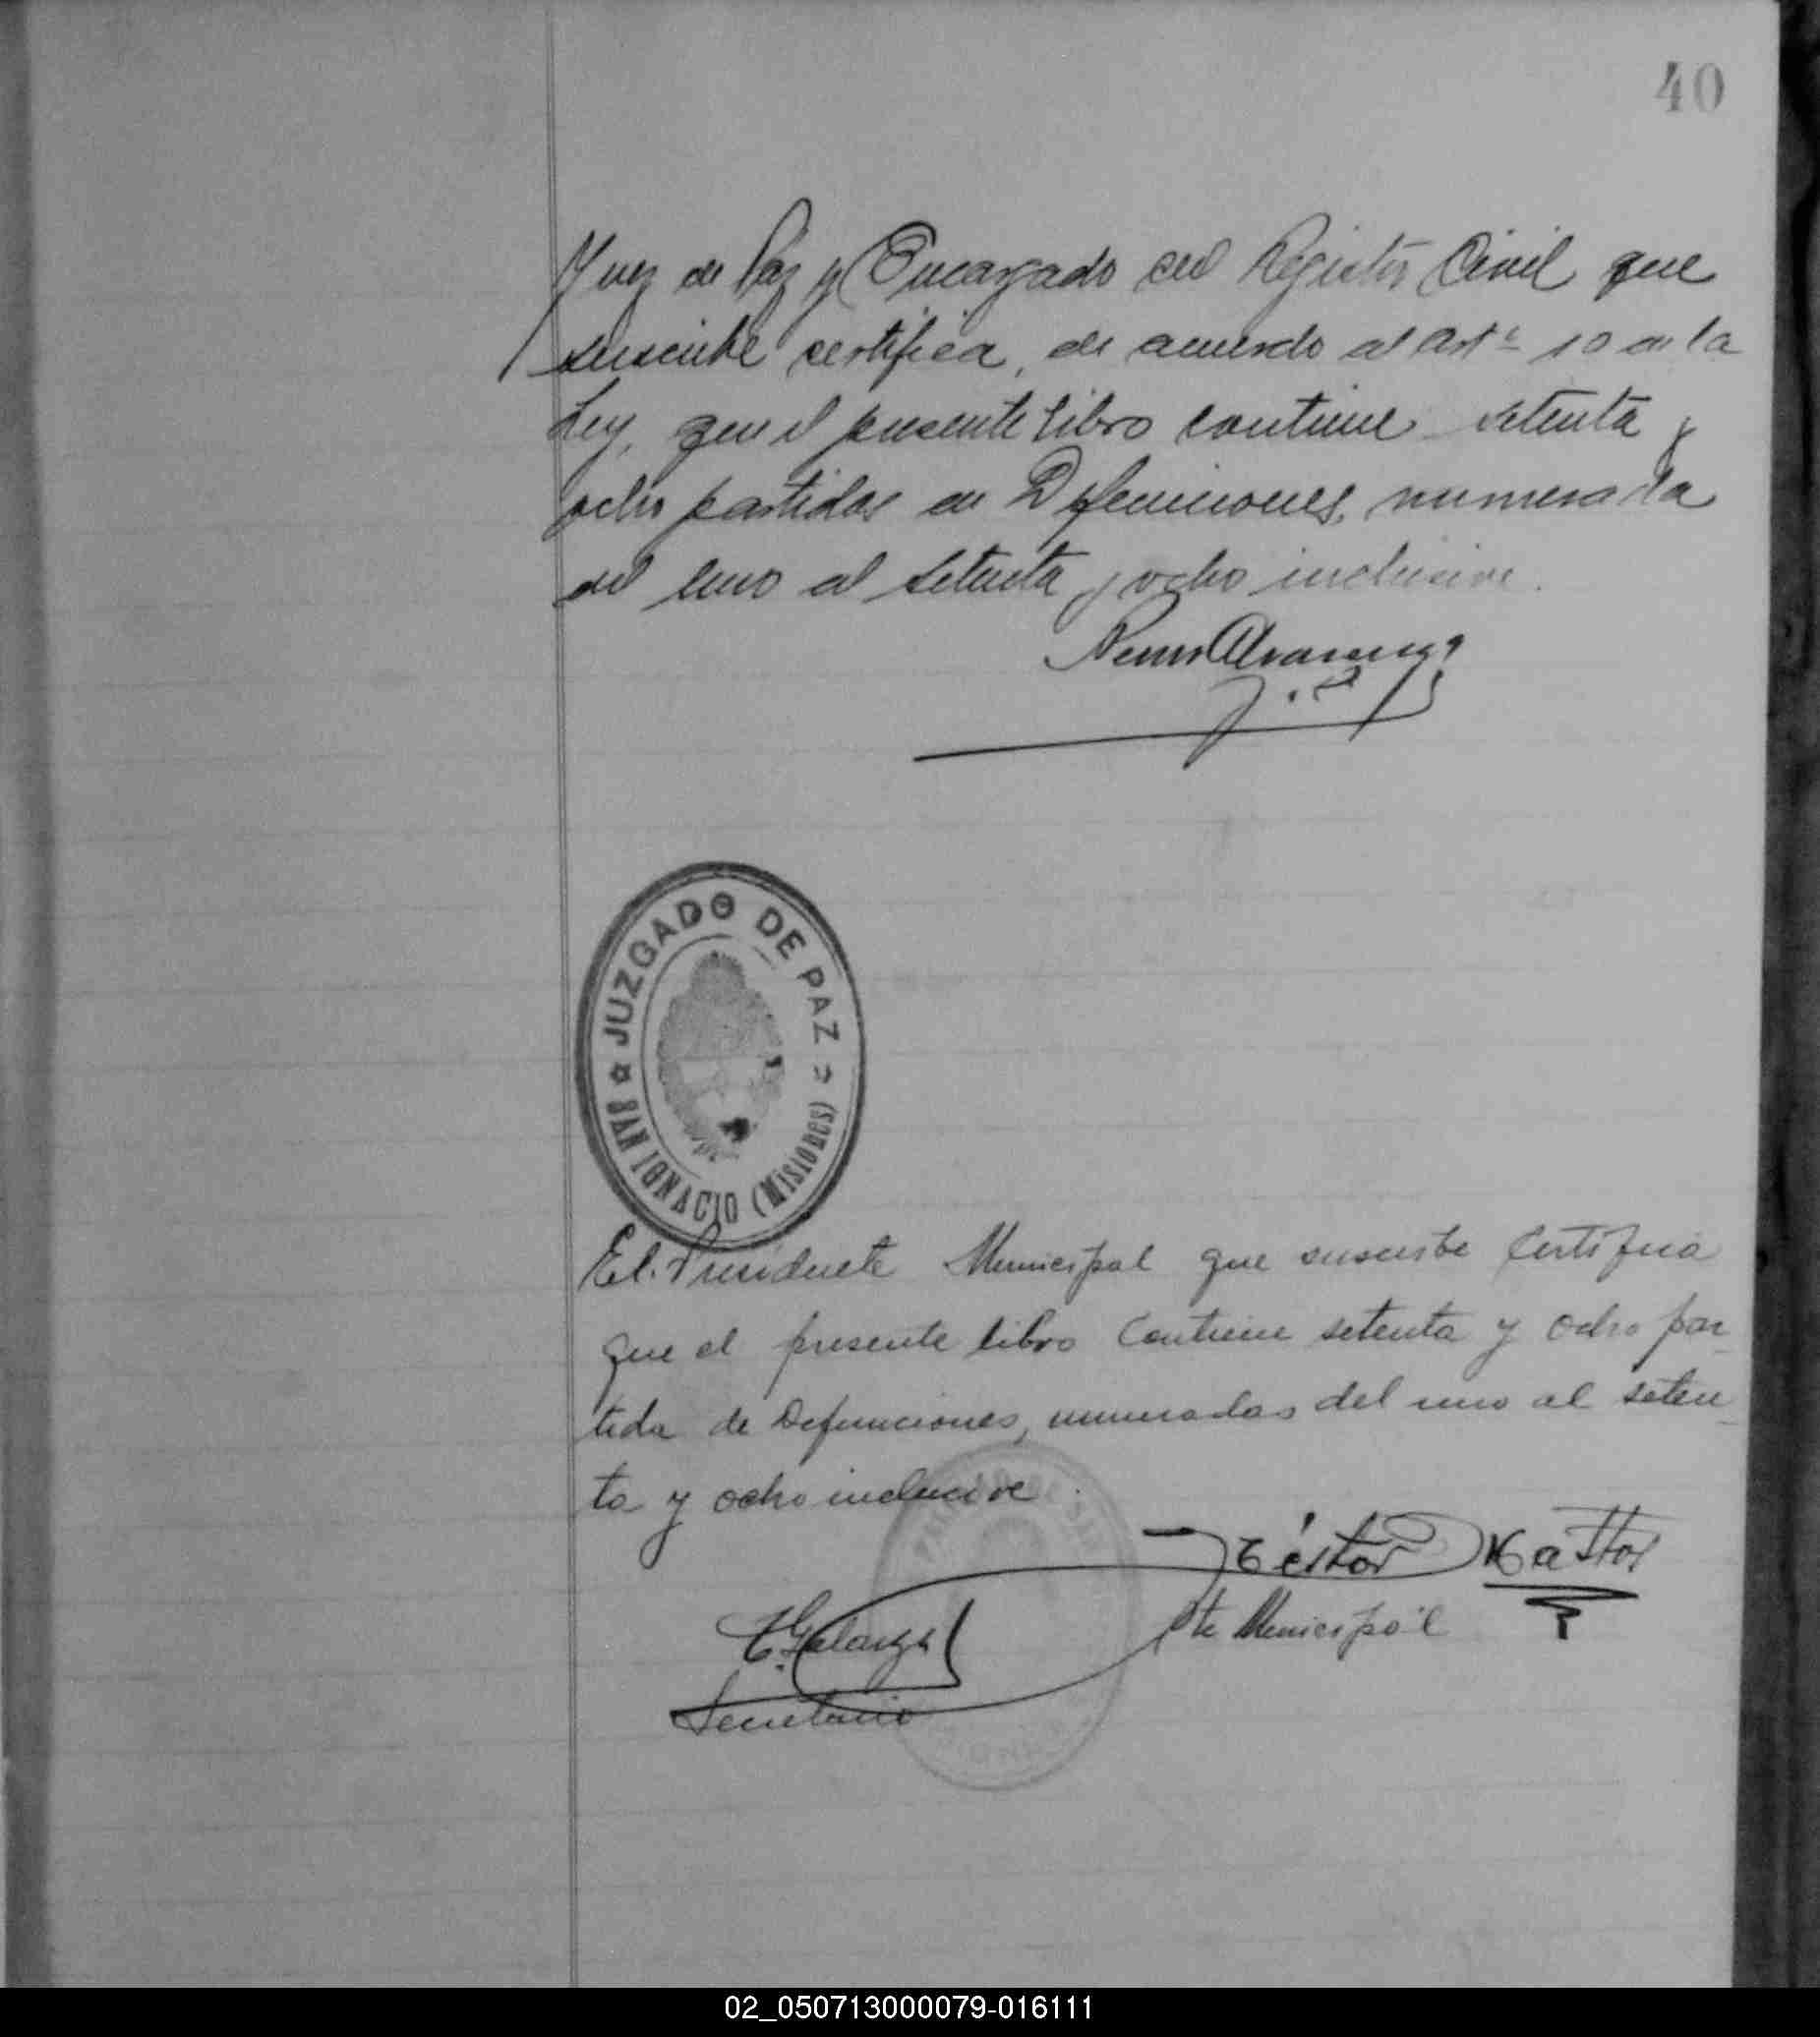 40
Juez de Paz y Encargado del Registro Civil que
suscribe certifica, de acuerdo al Artº 10 de la
Ley, que el presente libro contiene setenta y
ocho partidas de Defunciones, numerada
del uno al setenta y ocho inclusive.
J. P.
JUZGADO DE PAZ
SAN IGNACIO (MISIONES)
El Presidente Municipal que suscribe Certifica
que el presente libro Contiene setenta y ocho par-
tida de Defunciones, numeradas del uno al seten-
ta y ocho inclusive.
Néstor Mattos
Pte Municipal
Secretario
02_050713000079-016111